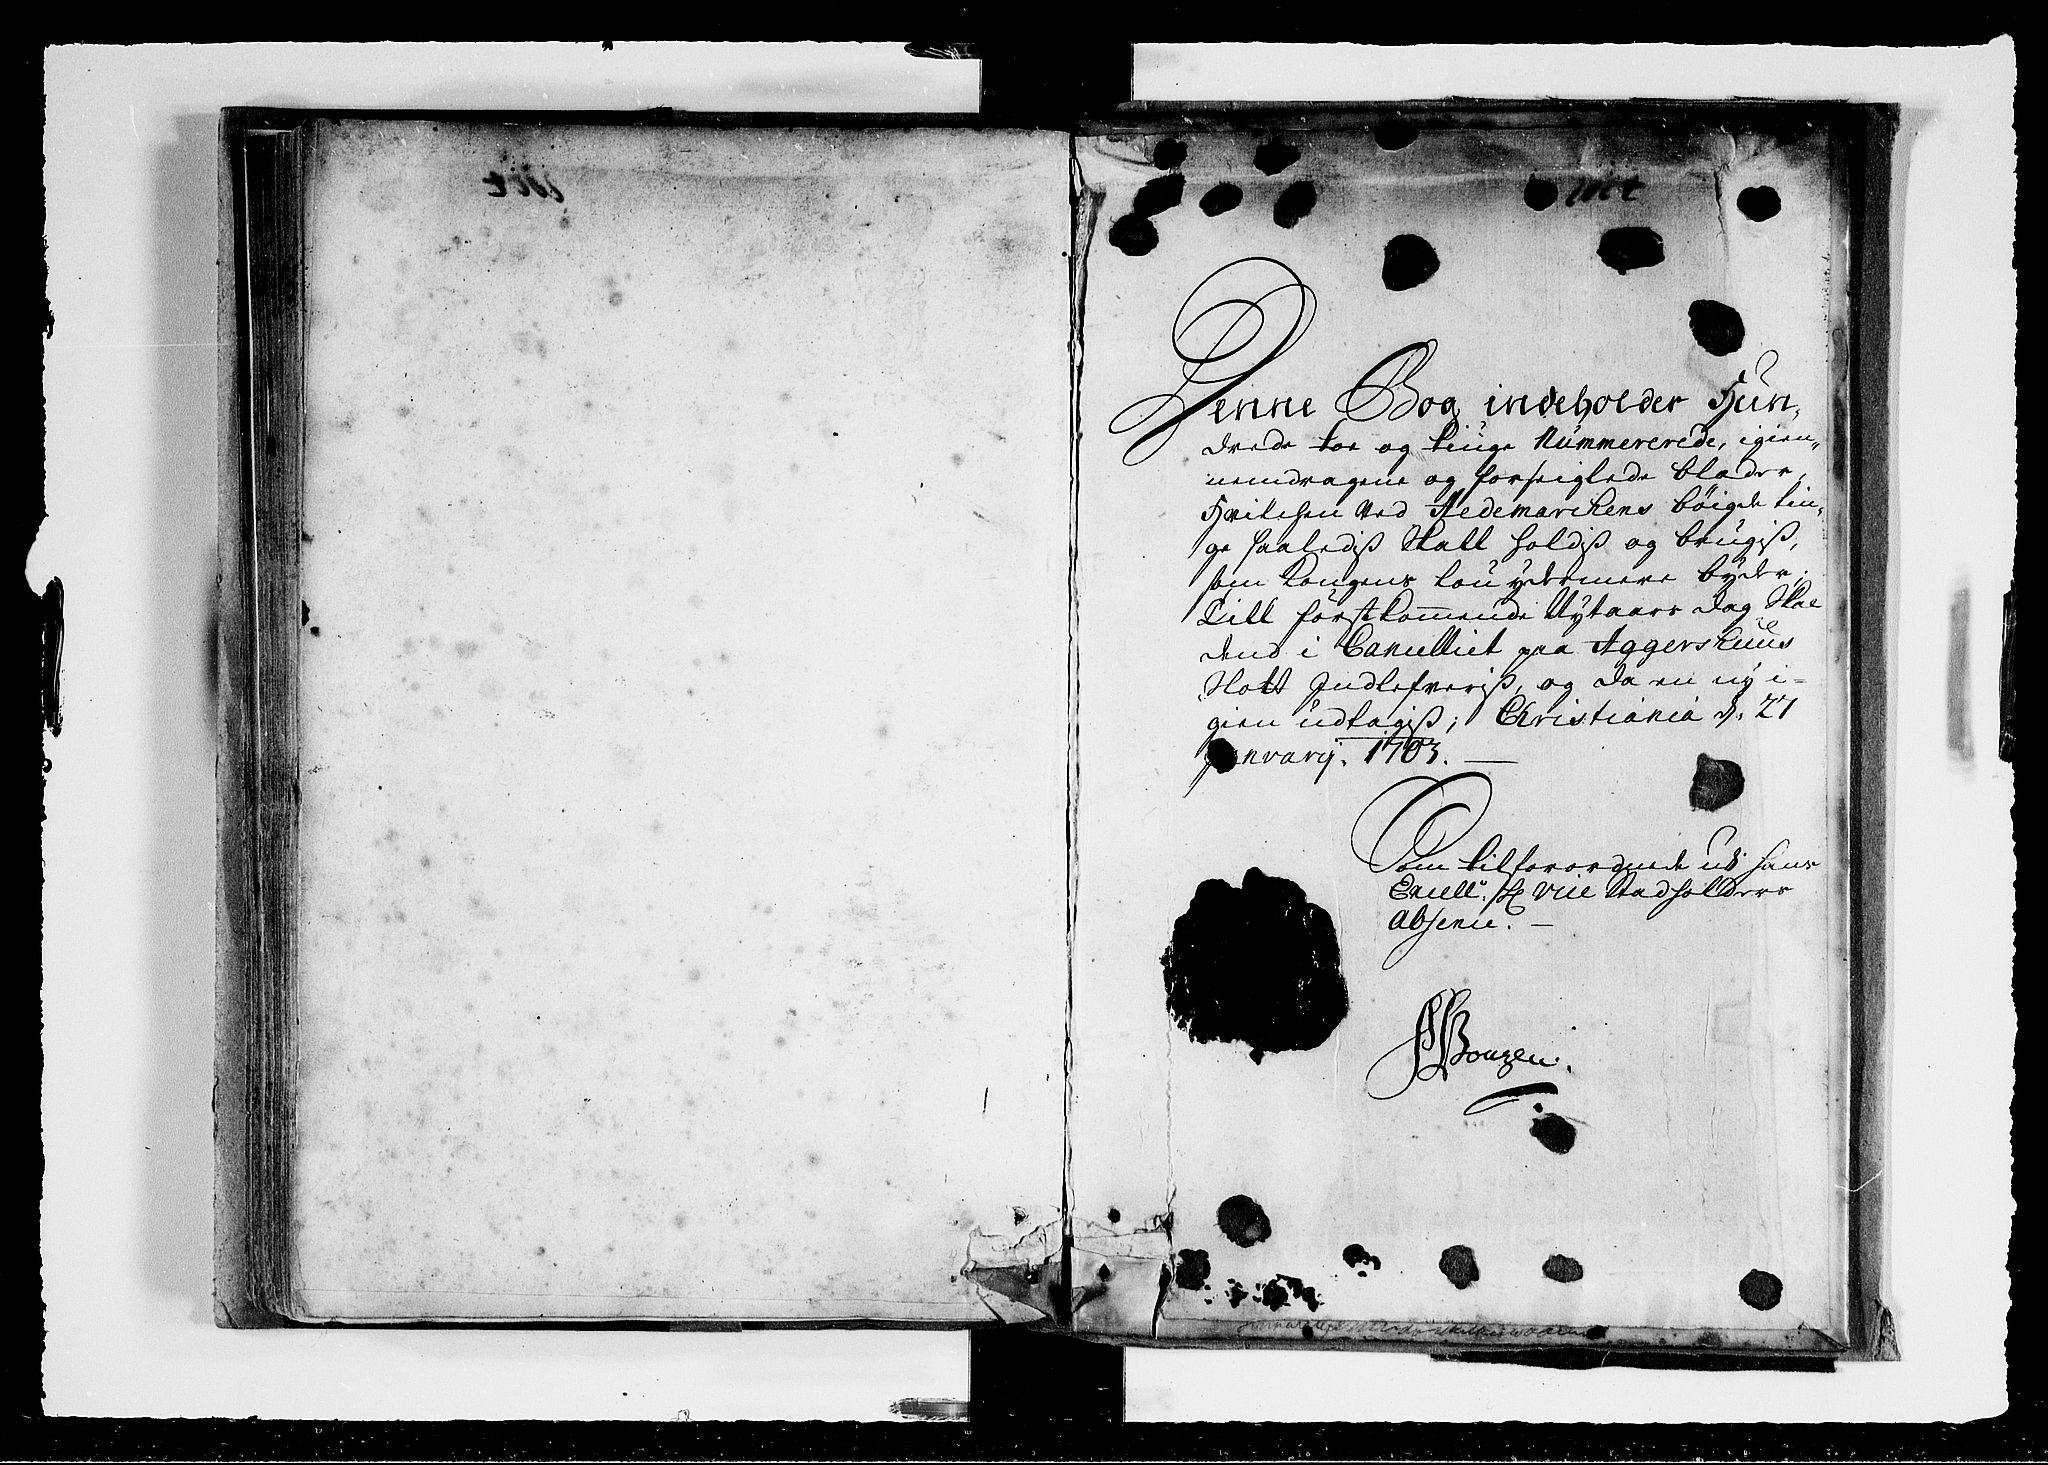 Denne Bog indeholder Hun,
drede toe og tiuge Nummererede, igien„
nemdragene og forseiglede blader,
Hvilchen ved Hedemarchens böigde tin,
ge saaledis Skall holdis og brugis,
som Kongens lou ydermere byder,
Till förstkomende Nytaars dag Skal
dend i Cancelliet paa Aggershuus
Slott Indlefveris, og da en ny i-
gien udtagis; Christiania d. 27
Janvarij. 1703.
Som tilforordnede udi hans
Excell: Hr Vice Stadholders
Absence.